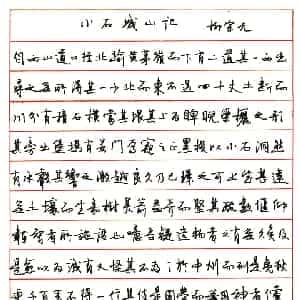 小石城山记 柳宗元
自西山道口径北踰黄茅岭而下有二道其一西出
寻之无所得其一少北而东不过四十丈土断而
川分有积石横当其垠其上为睥睨梁欐之形
其旁出堡坞有若门焉窥之正黑投以小石洞然
有水声其响之激越良久乃已环之可上望甚远
无土壤而生嘉树美箭益奇而坚其疏数偃仰
类智者所施设也噫吾疑造物者之有无久矣及
是愈以为诚有又怪其不为之于中州而列是夷狄
更千百年不得一售其伎是固劳而无用神者傥